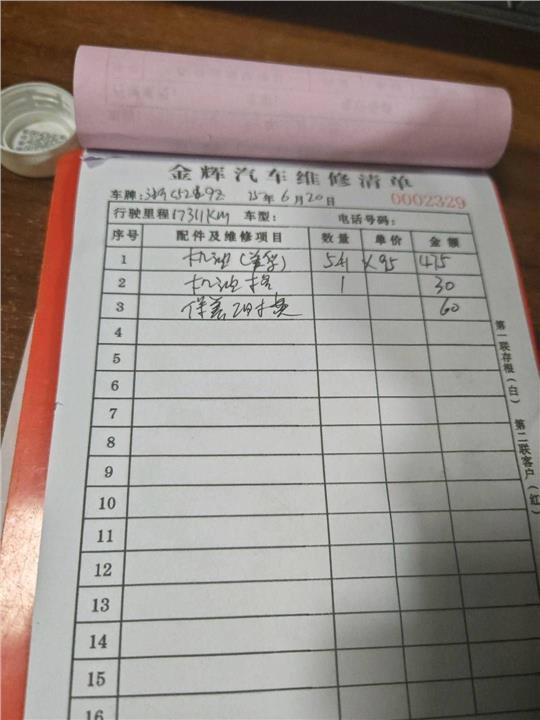 金辉汽车维修清单
车牌: 25年6月20日 0002329
行驶里程17311KM 车型: 电话号码:
序号 配件及维修项目 数量 单价 金额
1 机油 5斤 ×95 475
2 机油格 1 30
3 保养 60
4
5
6
7
8
9
10
11
12
13
14
15
16
第一联存根(白)
第二联客户(红)